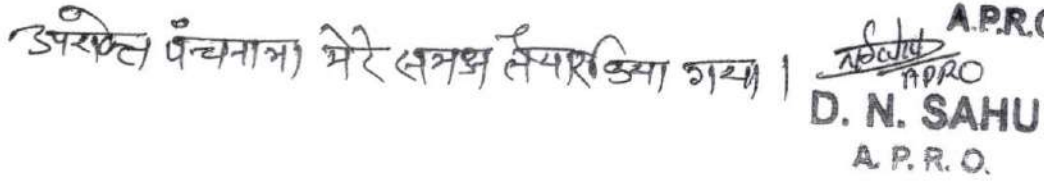 A.P.R.O
उपरोक्त पंचनामा मेरे समक्ष तैयार किया गया ।
APRO
D. N. SAHU
A. P. R. O.